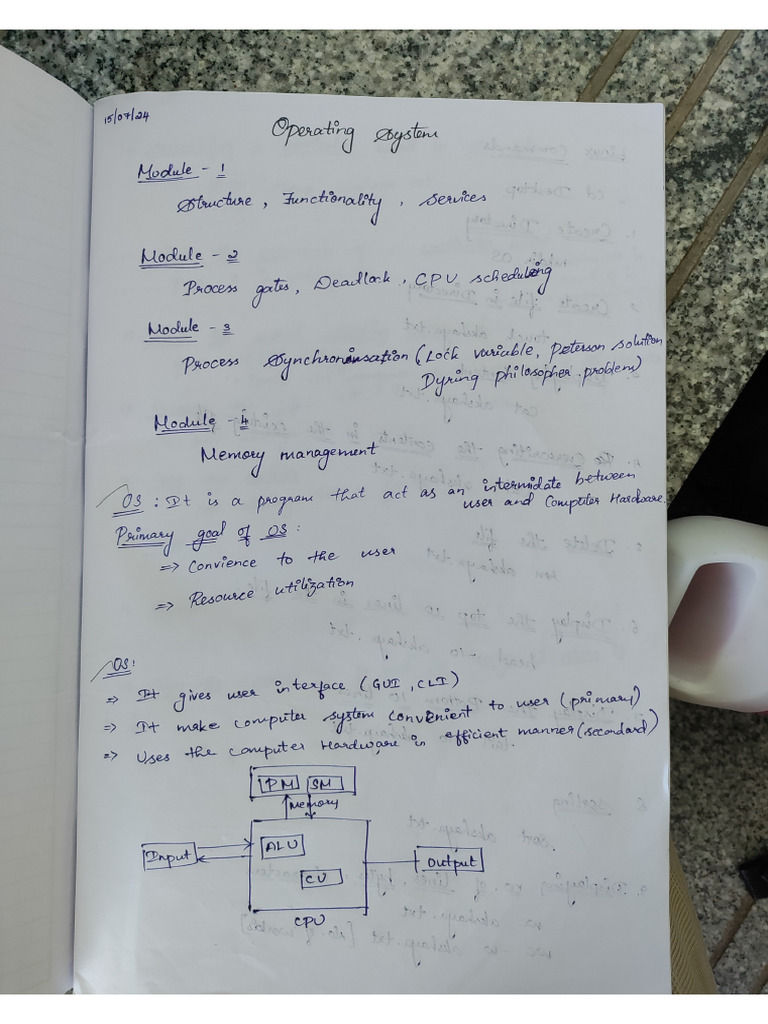 15/07/24
Operating System
Module - 1
Structure, Functionality, Services
Module - 2
Process gates, Deadlock, CPU scheduling
Module - 3
Process Synchronisation (Lock variable, Peterson solution
Dyring philosopher problem)
Module - 4
Memory management
OS : It is a program that act as an intermidate between
user and Computer Hardware.
Primary goal of OS :
=> Convience to the user
=> Resource utilization
OS:
=> It gives user interface (GUI, CLI)
=> It make computer system convenient to user (primary)
=> Uses the computer Hardware in efficient manner (secondard)
PM SM
Memory
Input
ALU
CU
Output
CPU